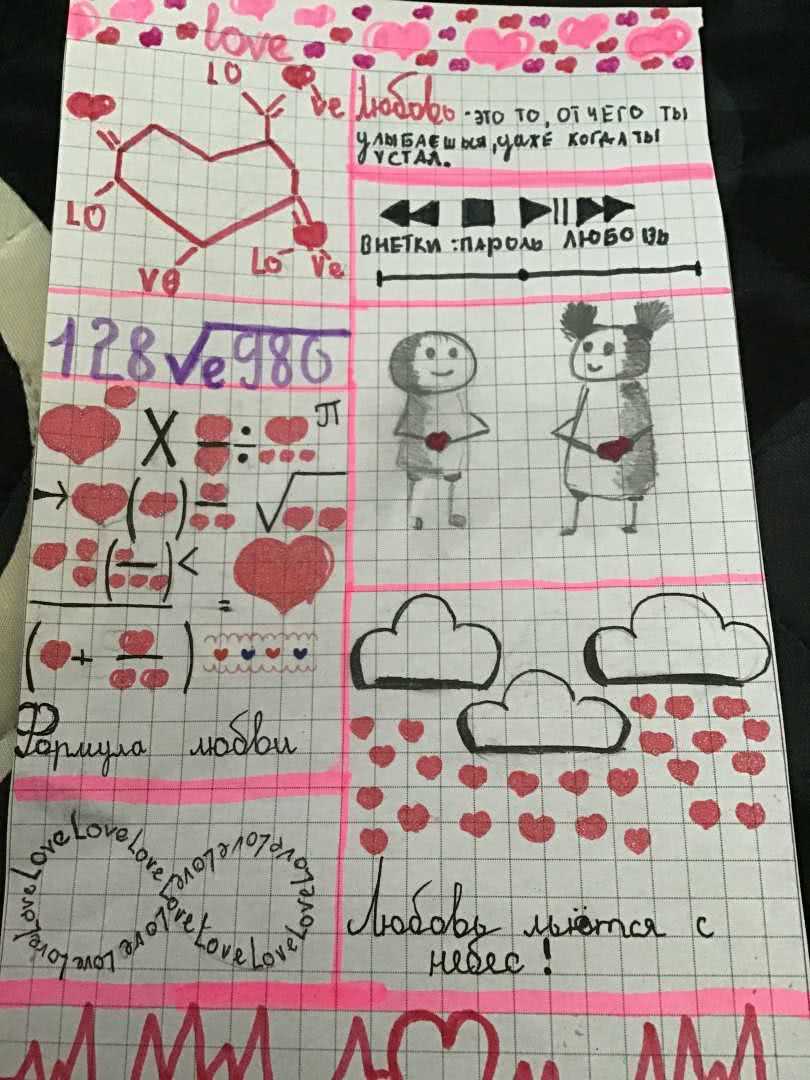 love
LO
ve
LO
ve
Lo
ve
Любовь - это то, от чего ты
улыбаешься, даже когда ты
устал.
ВНЕТКИ : ПАРОЛЬ ЛЮБОВЬ
128√e980
X ÷ П
( ) √
( ) <
=
( + )
Формула любви
LoveLoveLoveLoveLoveLoveLoveLoveLoveLoveLoveLoveLoveLove
Любовь льётся с
небес!